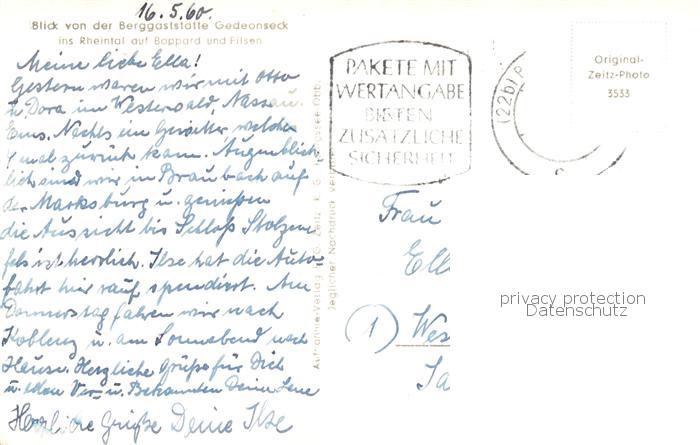 16.5.60.
Blick von der Berggaststätte Gedeonseck
ins Rheintal auf Boppard und Filsen
Meine liebe Ella!
Gestern waren wir mit Otto
u. Dora im Westerwald, Nassau.
Ems. Nachts ein Gewitter welches
4 mal zurück kam. Augenblick-
lich sind wir in Braubach auf
der Marksburg u. genießen
die Aussicht bis Schloß Stolzen-
fels ist herrlich. Ilse hat die Auto-
fahrt hier rauf spendiert. Am
Donnerstag fahren wir nach
Koblenz u. am Sonnabend nach
Hause. Herzliche Grüße für Dich
u. allen Ver- u. Bekannten Deine Lene
Herzliche Grüße Deine Ilse
Jeglicher Nachdruck
PAKETE MIT
WERTANGABE
BIETEN
ZUSÄTZLICHE
SICHERHEIT
(22b)
Original-
Zeitz-Photo
3533
Frau
Ell
(1) Wes
privacy protection
Datenschutz